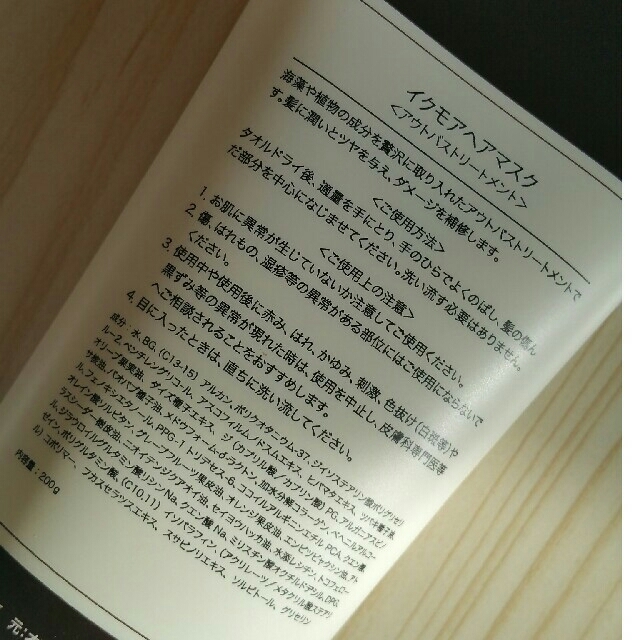 イクモアヘアマスク
<アウトバストリートメント>
海藻や植物の成分を贅沢に取り入れたアウトバストリートメントで
す。髪に潤いとツヤを与え、ダメージを補修します。
<ご使用方法>
タオルドライ後、適量を手にとり、手のひらでよくのばし、髪の傷ん
だ部分を中心になじませてください。洗い流す必要はありません。
<ご使用上の注意>
1. お肌に異常が生じていないか注意してご使用ください。
2. 傷、はれもの、湿疹等の異常がある部位にはご使用にならないで
ください。
3. 使用中や使用後に赤み、はれ、かゆみ、刺激、色抜け(白斑等)や
黒ずみ等の異常が現れた時は、使用を中止し、皮膚科専門医等
へご相談されることをおすすめします。
4. 目に入ったときは、直ちに洗い流してください。
成分:水、BG、(C13-15) アルカン、ポリクオタニウム-37、ジイソステアリン酸ポリグリセリ
ル-2、ペンチレングリコール、アスコフィルムノドスムエキス、ヒバマタエキス、ツバキ種子油、
オリーブ果実油、ダイズ種子エキス、ジ (カプリル酸/カプリン酸) PG、アルガニアスピノ
サ核油、バオバブ種子油、メドウフォーム-δ-ラクトン、加水分解コラーゲン、ベヘニルアルコー
ル、フェノキシエタノール、PPG-1 トリデセス-6、ココイルアルギニンエチル PCA、クエン酸、
オレイン酸ソルビタン、グレープフルーツ果皮油、オレンジ果皮油、エンピツビャクシン油、
ゼイン、ジラウロイルグルタミン酸リシンNa、クエン酸 Na、ミリスチン酸オクチルドデシル、DPG、
ル) コポリマー、
内容量:200g
フカスセラツスエキス、スサビノリエキス、ソルビトール、グリセリン
元: